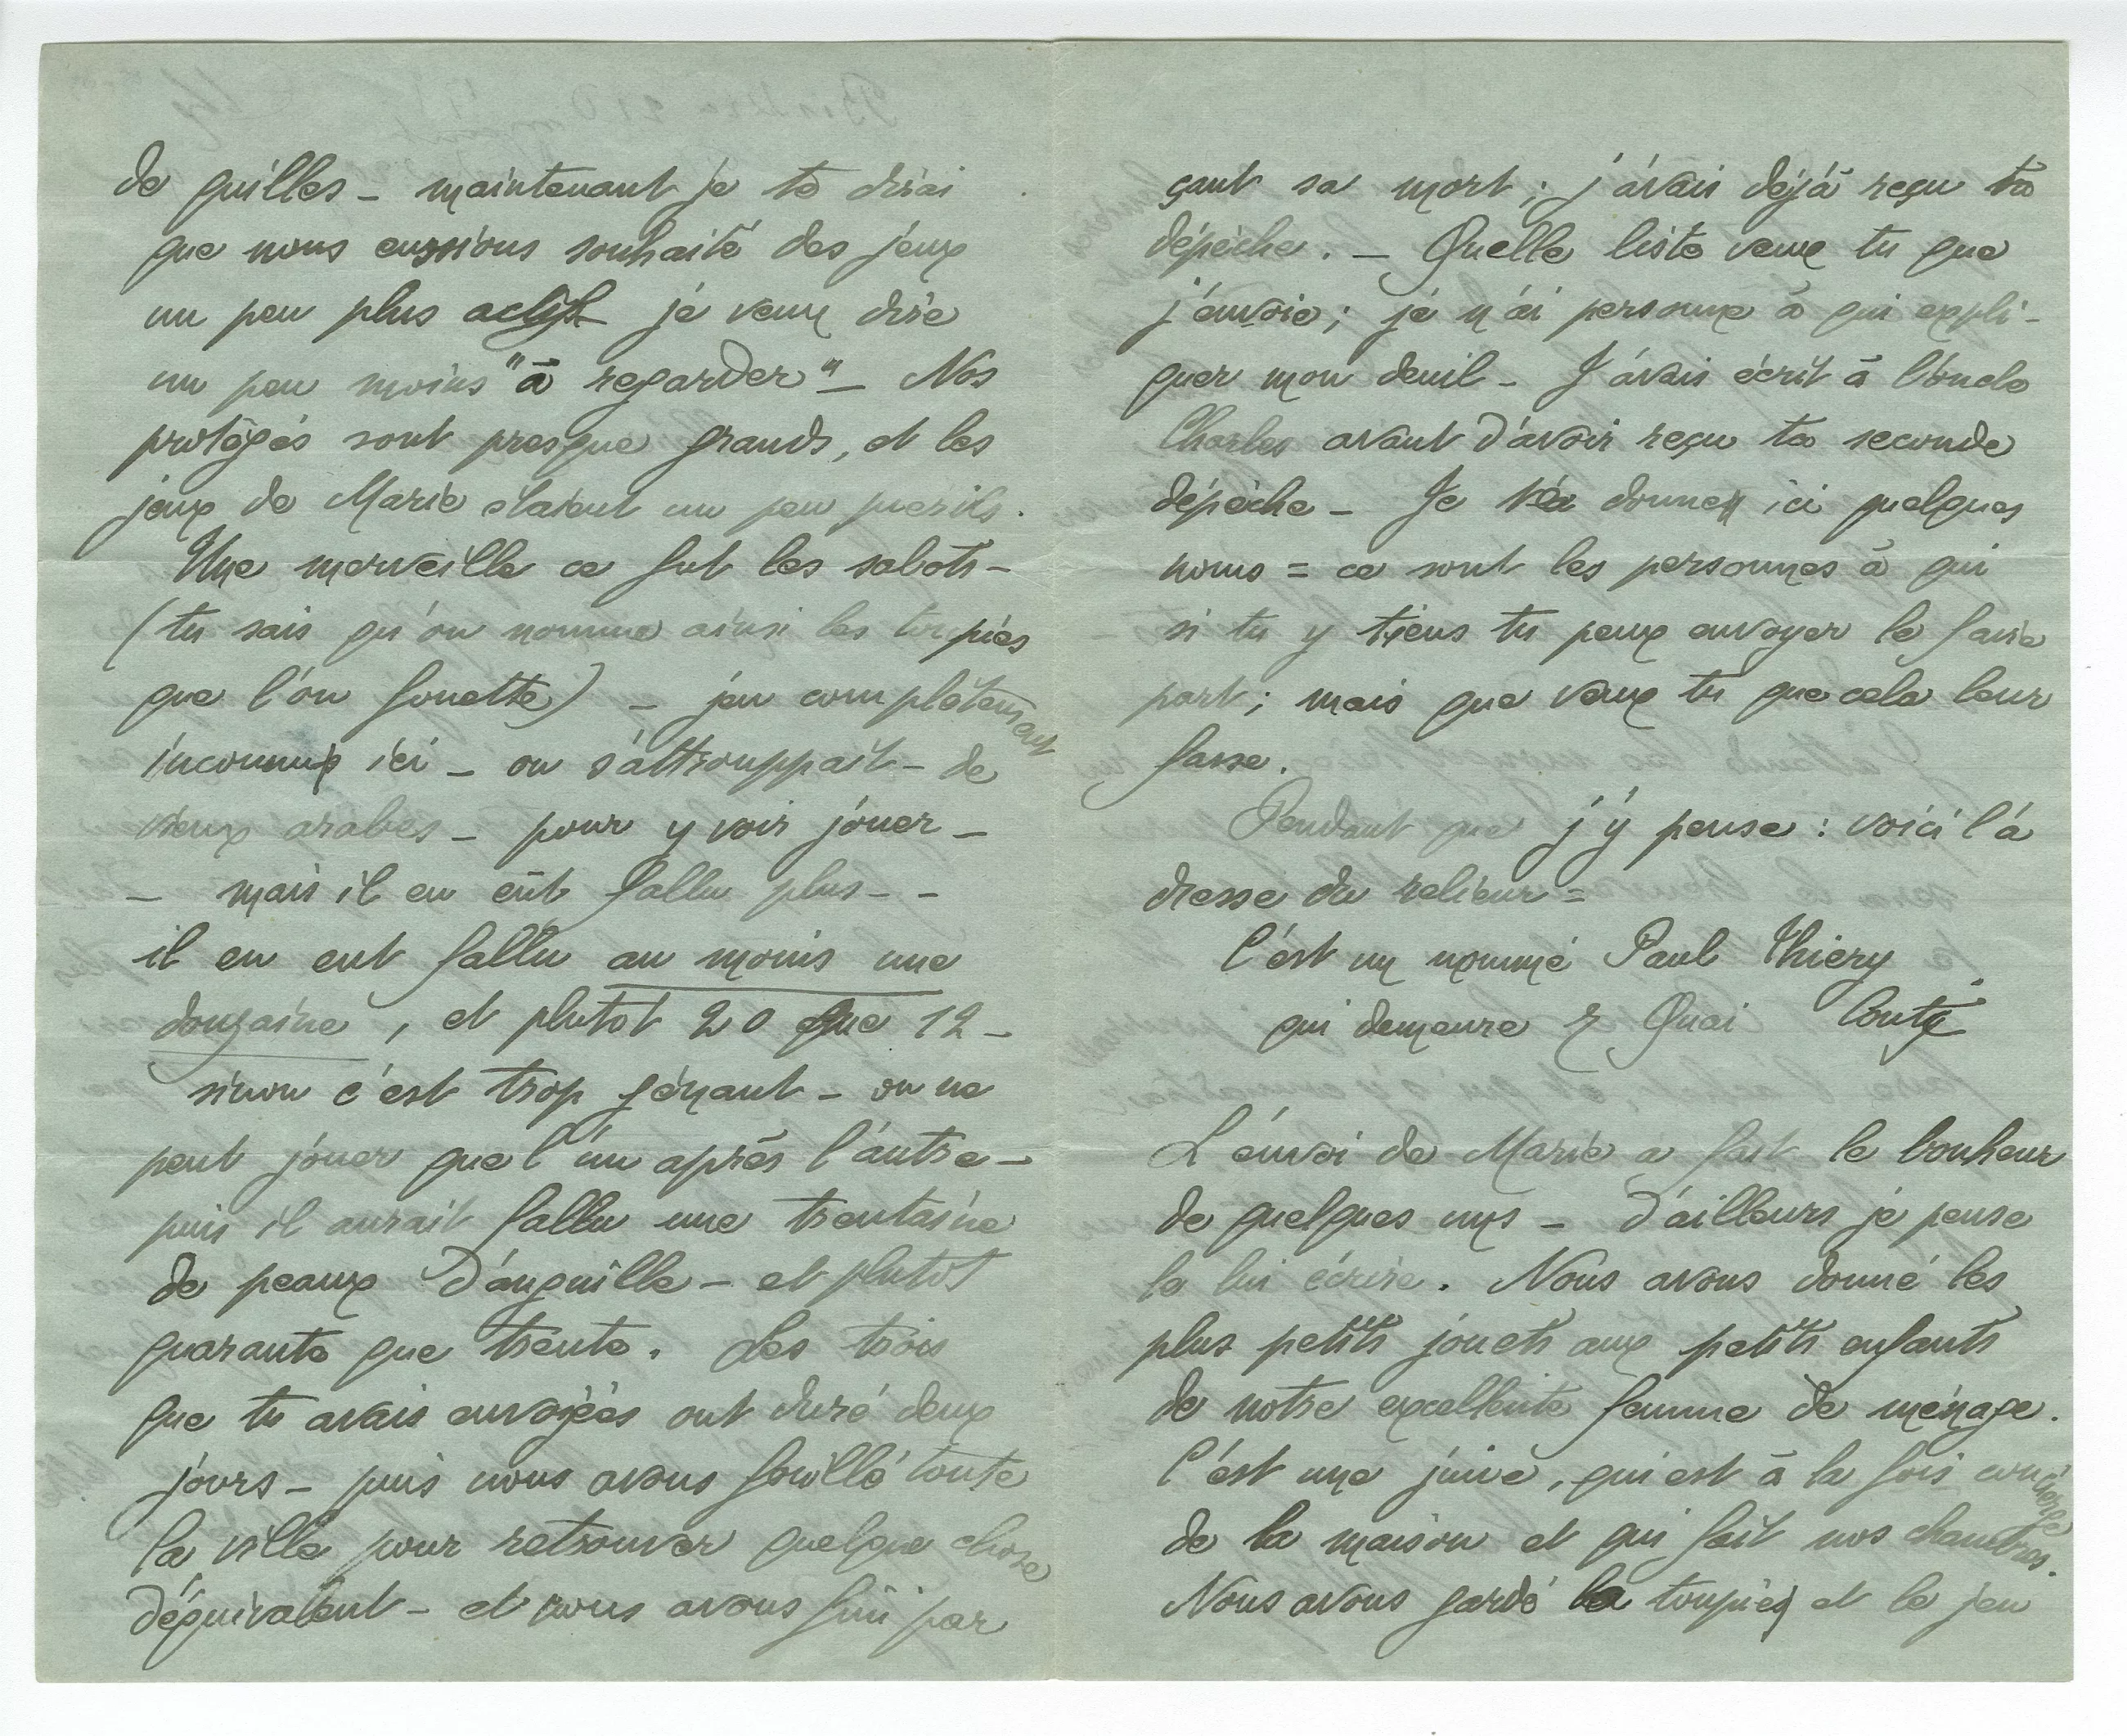 de quilles – maintenant je te dirai
que nous eussions souhaité des jeux
un peu plus actifs je veux dire
un peu moins "à regarder" – Nos
protégés sont presque grands, et les
jeux de Marie étaient un peu puerils.
Une merveille ce fut les sabots –
(tu sais qu'on nomme ainsi les toupies
que l'on fouette) – jeu complètement
inconnu ici – on s'attrouppait – de
vieux arabes – pour y voir jouer –
– mais il en eût fallu plus – –
il en eut fallu au moins une
douzaine, et plutot 20 que 12 –
sinon c'est trop gênant – on ne
peut jouer que l'un après l'autre –
puis il aurait fallu une trentaine
de peaux d'anguille – et plutôt
quarante que trente. Les trois
que tu avais envoyées ont duré deux
jours – puis nous avons fouillé toute
la ville pour retrouver quelque chose
d'équivalent – et nous avons fini par
çant sa mort ; j'avais déjà reçu ta
dépèche. – Quelle liste veux tu que
j'envoie ; je n'ai personne à qui expli-
quer mon deuil – J'avais écrit à l'oncle
Charles avant d'avoir reçu ta seconde
dépèche – Je donne ici quelques
noms = ce sont les personnes à qui
si tu y tiens tu peux envoyer le faire
part ; mais que veux tu que cela leur
fasse.
Pendant que j'y pense : voici l'a
dresse du relieur =
C'est un nommé Paul Thiery
qui demeure Quai Conti
L'envoi de Marie a fait le bonheur
de quelques uns – d'ailleurs je pense
le lui écrire. Nous avons donné les
plus petits jouets aux petits enfants
de notre excellente femme de ménage.
C'est une juive, qui est à la fois concierge
de la maison et qui fait nos chambres.
Nous avons gardé la toupies et le jeu